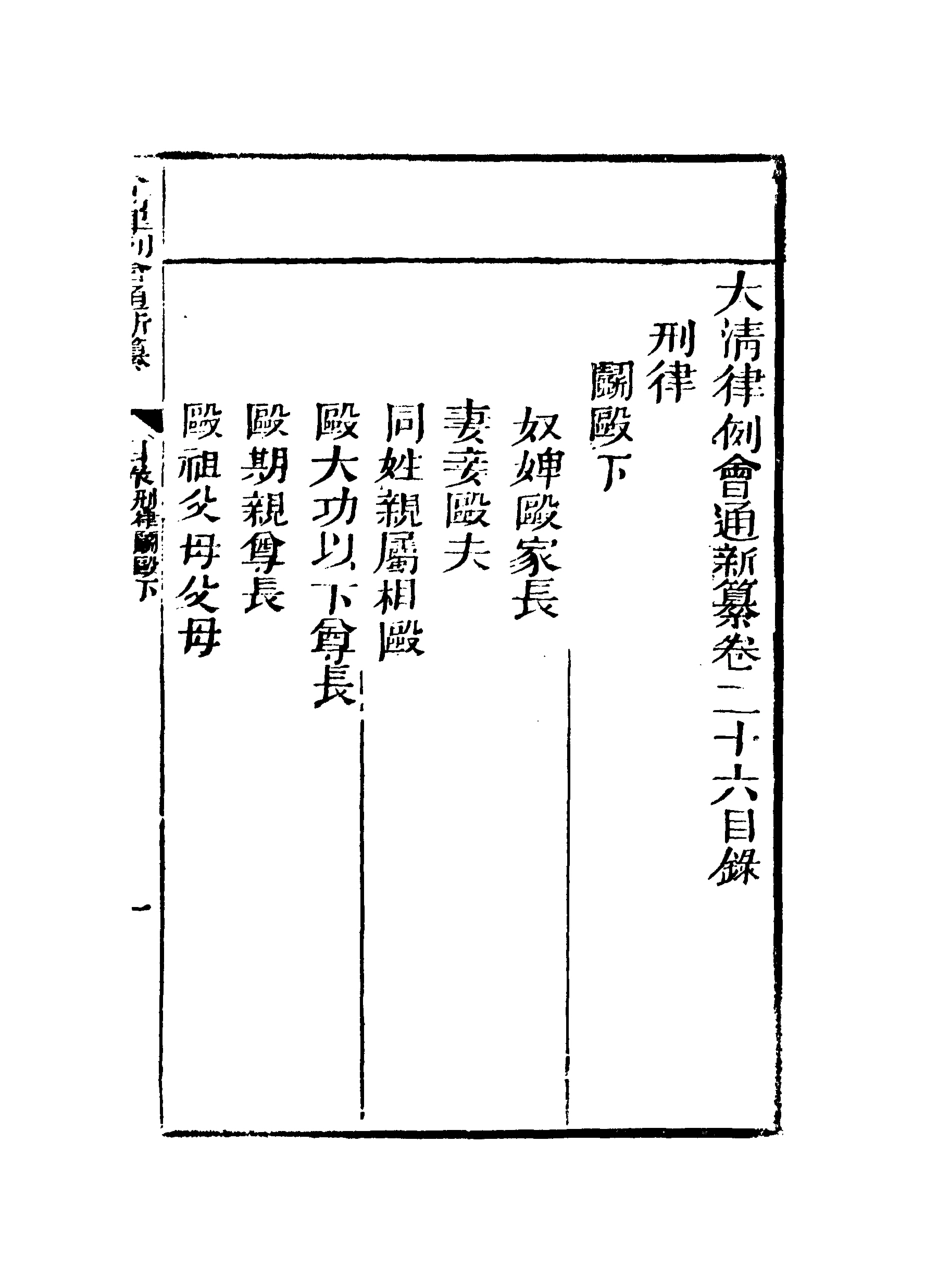 大清律例會通新纂卷二十六目錄
刑律
鬭毆下
奴婢毆家長
妻妾毆夫
同姓親屬相毆
毆大功以下尊長
毆期親尊長
毆祖父母父母
刑律鬭毆下
一